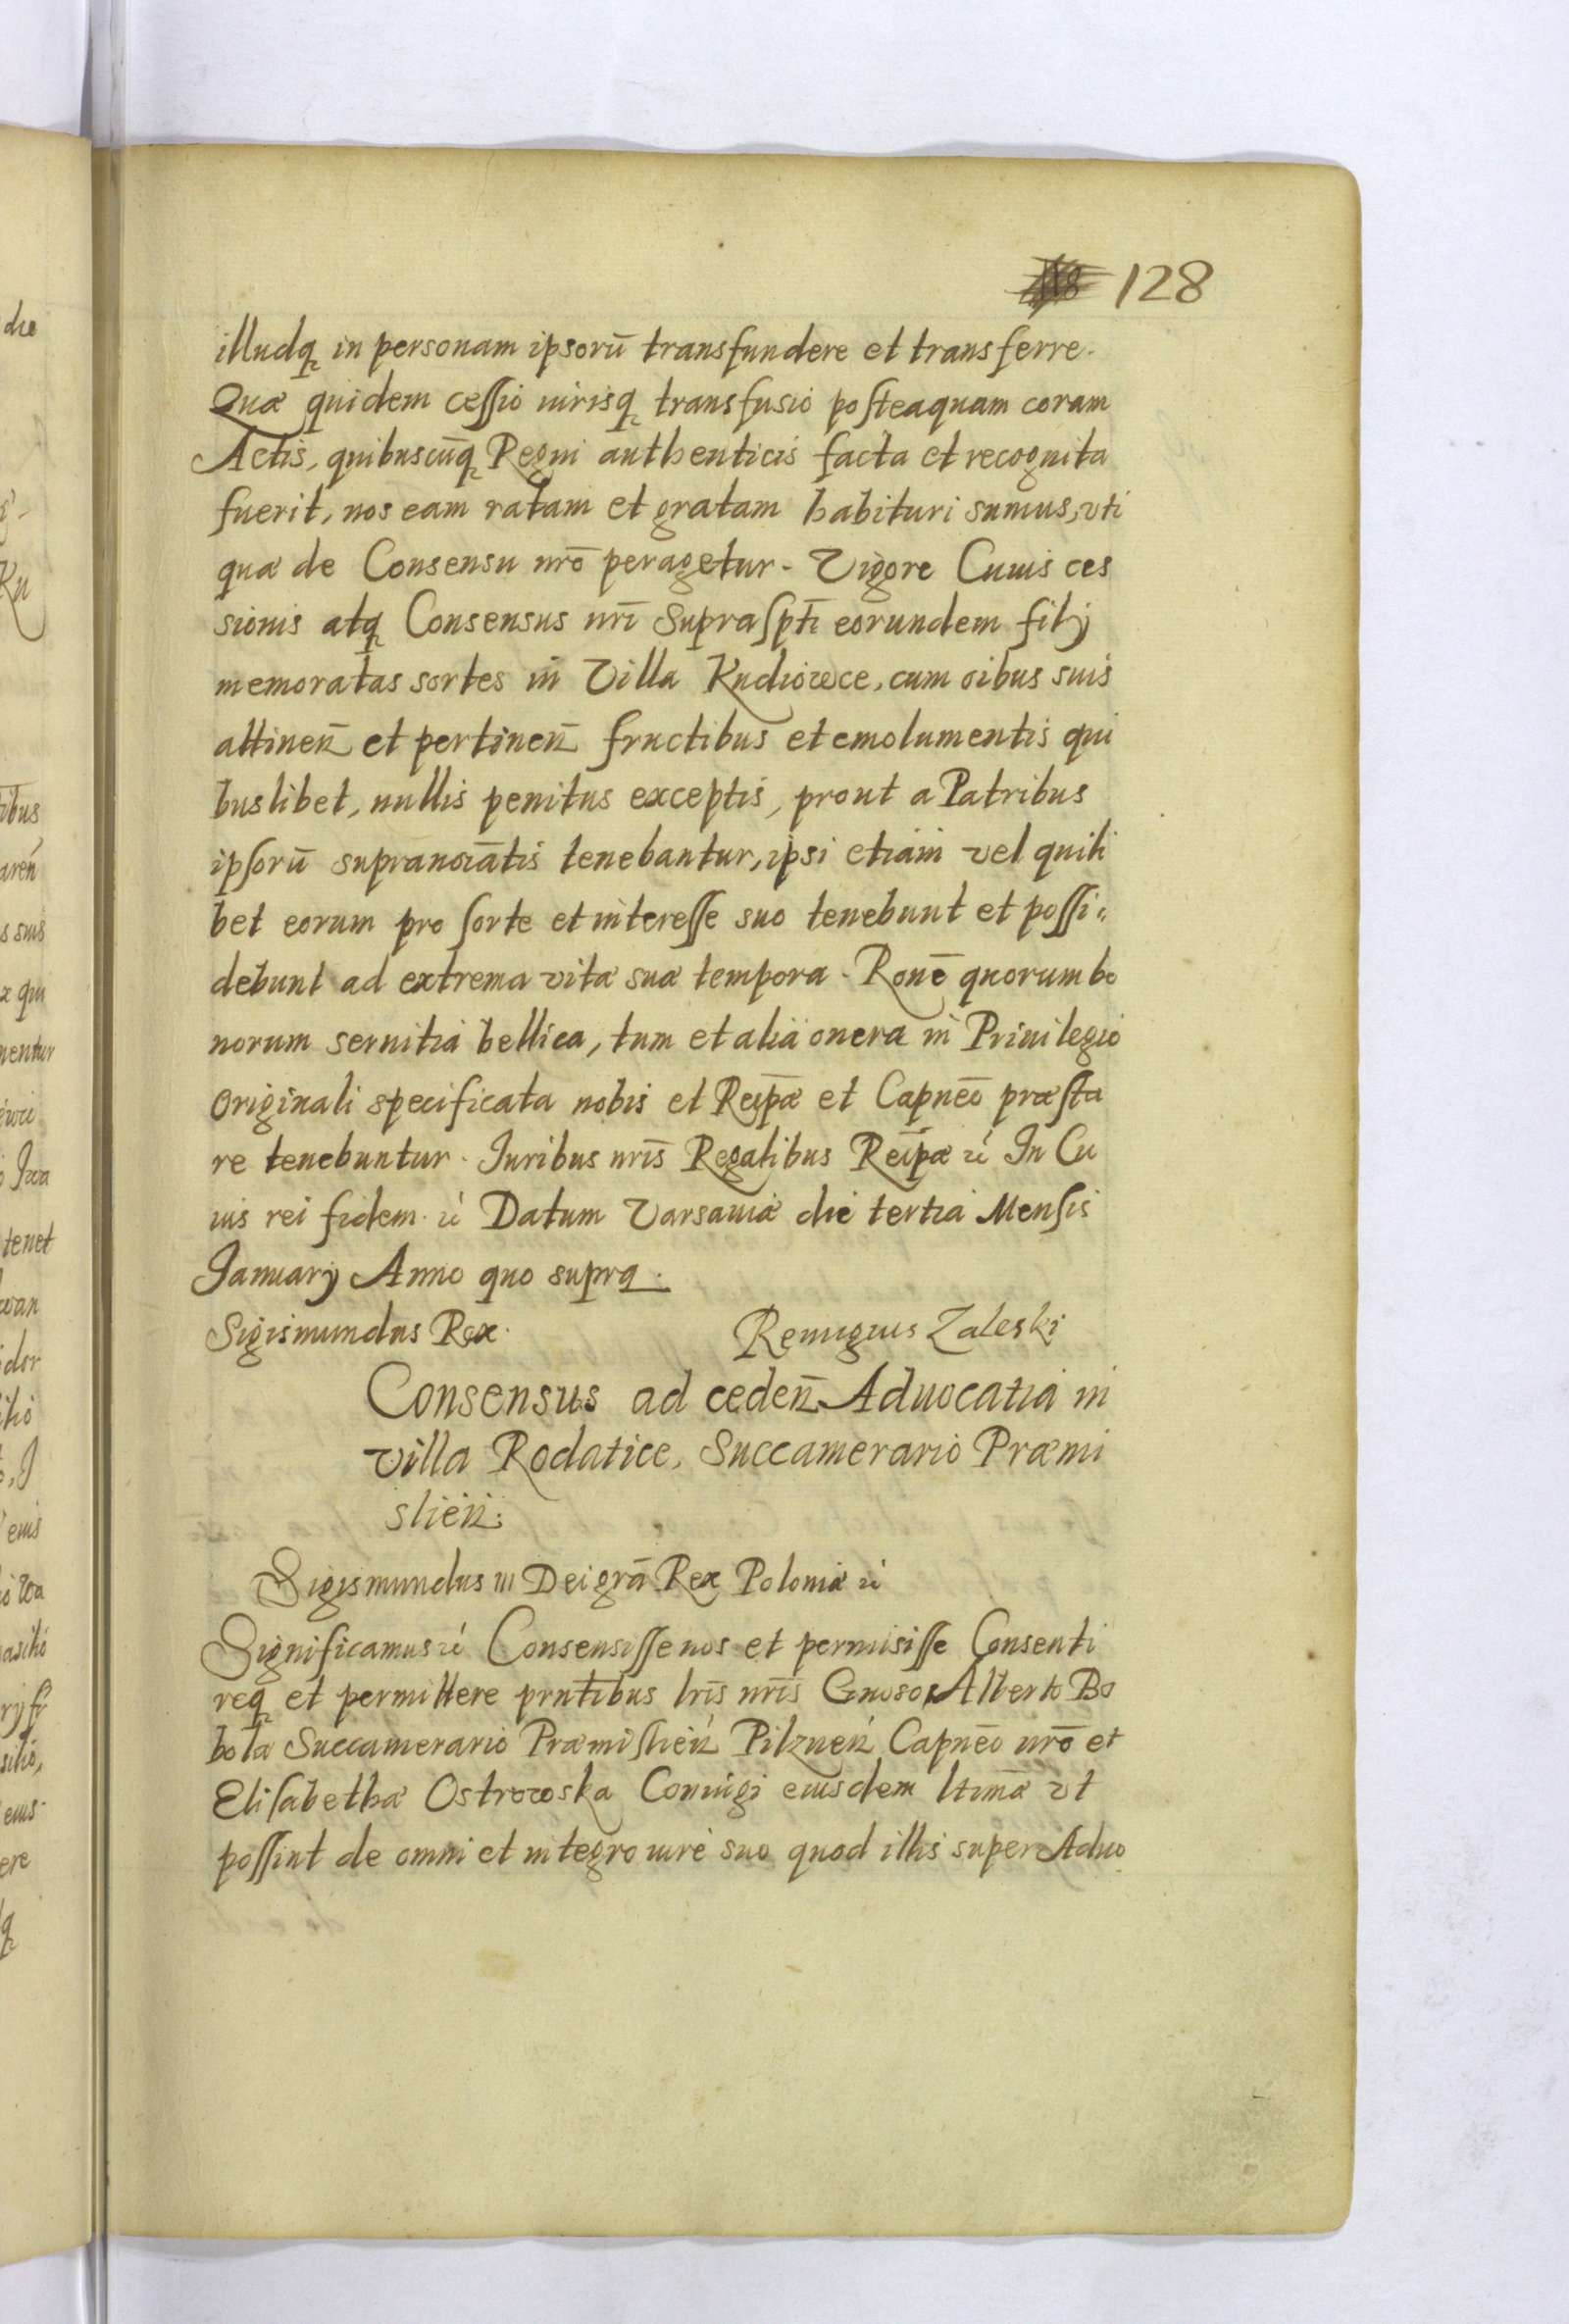 128
illudq, in personam ipsorū transfundere et transferre.
Quæ quidem cessio iurisq, transfusio posteaquam coram
Actis, quibuscūq, Regni authenticis facta et recognita
fuerit, nos eam ratam et gratam habituri sumus, vti
quæ de Consensu nrō peragetur. Vigore Cuius ces
sionis atq, Consensus nrī supraspti eorundem filÿ
memoratas sortes in Villa Kudiowce, cum oibus suis
attineñ et pertineñ fructibus et emolumentis qui
buslibet, nullis penitus exceptis, prout a Patribus
ipsorū supranoīatis tenebantur, ipsi etiam vel quili
bet eorum pro sorte et interesse suo tenebunt et possi=
debunt ad extrema vitæ suæ tempora. Ronē quorum bo
norum seruitia bellica, tum et alia onera in Priuilegio
originali specificata nobis et Reipæ et Capneō præsta
re tenebuntur. Juribus nrīs Regalibus Reipæ ꝛć In Cu
ius rei fidem ꝛć Datum Varsauiæ die tertia Mensis
Januarÿ Anno quo supra.
Sigismundus Rex. Remigius Zaleski
Consensus ad cedeñ Aduocatia in
villa Rodatice, Succamerario Præmi
slieñ.
Sigismundus III Dei grā Rex Poloniæ ꝛć
Significamus ꝛć Consensisse nos et permisisse Consenti
req, et permittere prntibus lrīs nrīs Gnoso Alberto Bo
bola Succamerario Præmislień Pilzneń Capneō nrō et
Elisabethæ Ostrowska Coniugi eiusdem ltimæ vt
possint de omni et integro iure suo quod illis super Aduo